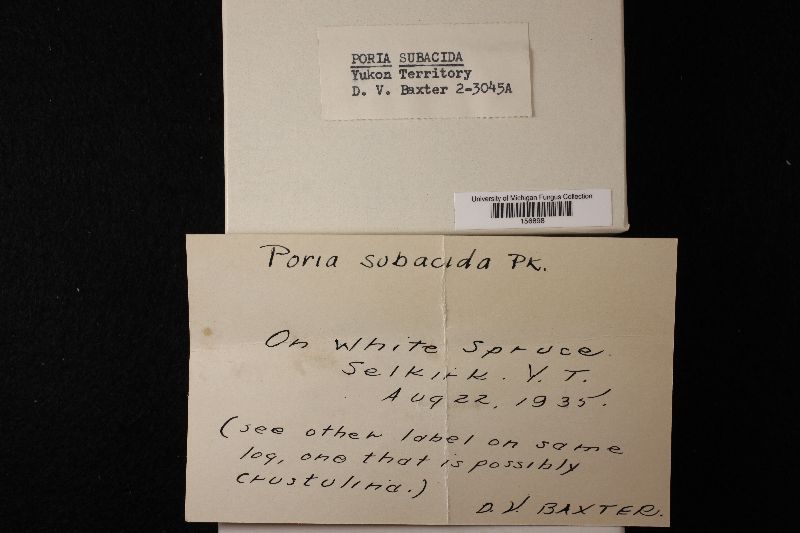 PORIA SUBACIDA
Yukon Territory
D. V. Baxter 2-3045A
University of Michigan Fungus Collection
156898
Poria subacida PK.
On White Spruce.
Selkirk. Y. T.
Aug 22, 1935.
(see other label on same
log, one that is possibly
crustulina.)
D. V. BAXTER.